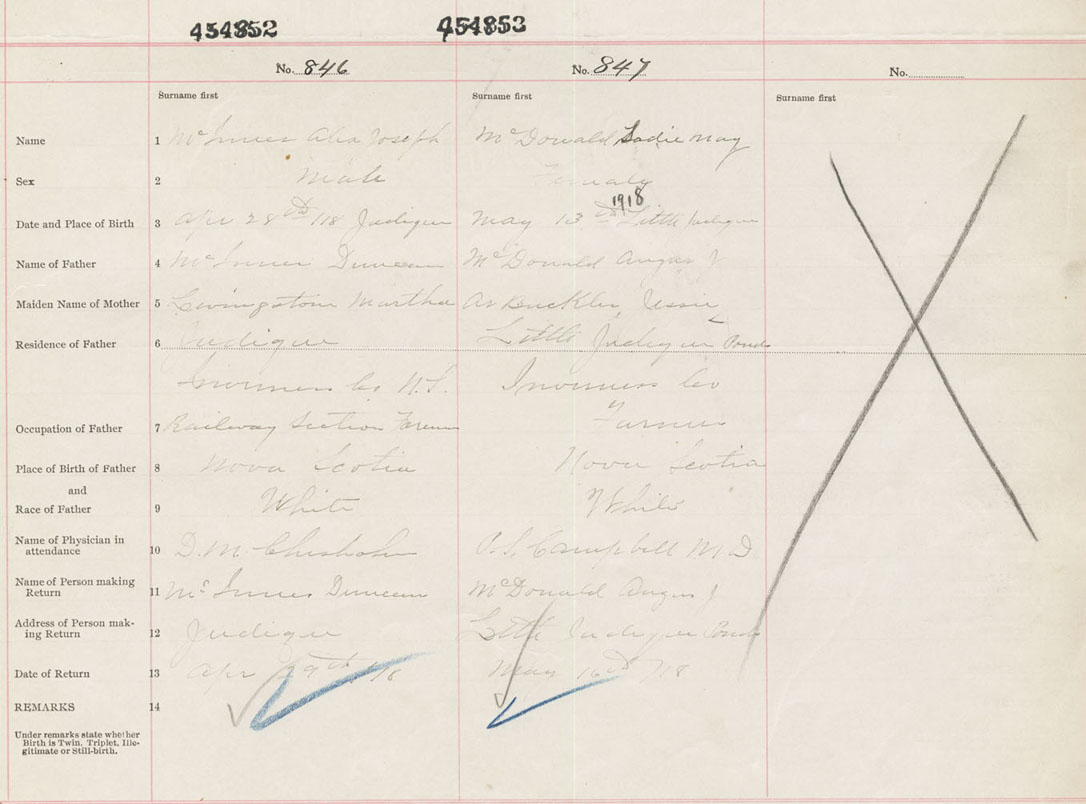 454852 454853
No. 846 No. 847 No.
Surname first Surname first Surname first
Name 1 McInnes Alex Joseph McDonald Sadie May
Sex 2 Male Female
Date and Place of Birth 3 Apr 28th /18 Judique May 13th 1918 Little Judique
Name of Father 4 McInnes Duncan McDonald Angus J
Maiden Name of Mother 5 Livingstone Martha Arbuckle, Jessie
Residence of Father 6 Judique Little Judique Ponds
Inverness Co N.S. Inverness Co
Occupation of Father 7 Railway Section Foreman Farmer
Place of Birth of Father 8 Nova Scotia Nova Scotia
and
Race of Father 9 White White
Name of Physician in
attendance 10 D. M. Chisholm Campbell M.D
Name of Person making
Return 11 McInnes Duncan McDonald Angus J
Address of Person mak-
ing Return 12 Judique Little Judique Ponds
Date of Return 13 Apr 29th /18 May 16th /18
REMARKS 14
Under remarks state whether
Birth is Twin, Triplet, Ille-
gitimate or Still-birth.